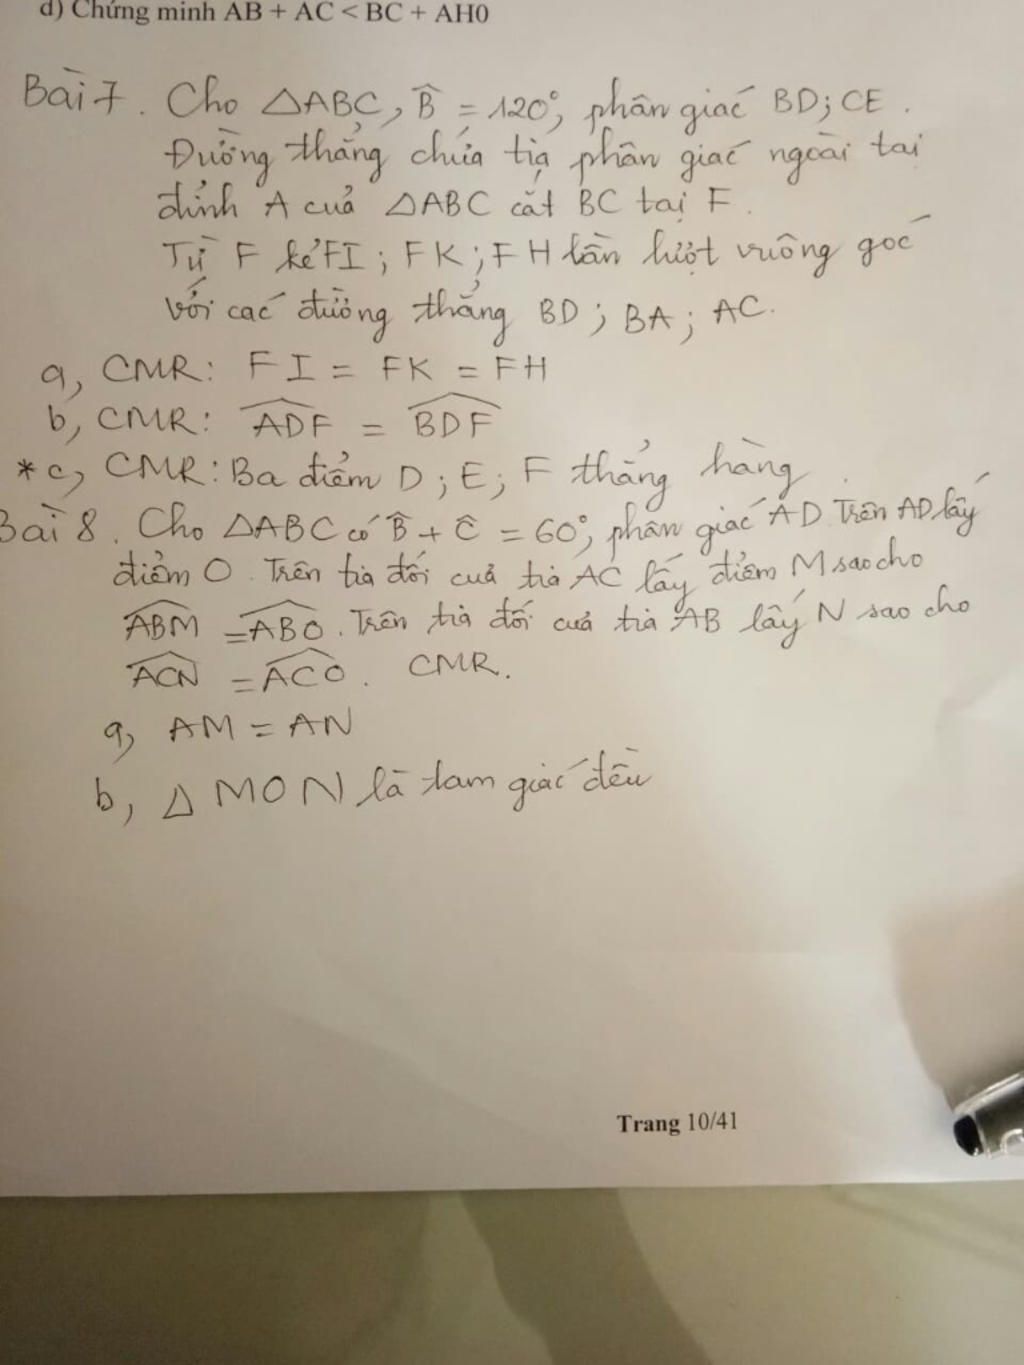 d) Chứng minh AB + AC < BC + AH0
Bài 7. Cho △ABC, B̂ = 120°, phân giác BD; CE.
Đường thẳng chứa tia phân giác ngoài tại
đỉnh A của △ABC cắt BC tại F.
Từ F kẻ FI; FK; FH lần lượt vuông góc
với các đường thẳng BD; BA; AC.
a, CMR: FI = FK = FH
b, CMR: \widehat{ADF} = \widehat{BDF}
* c, CMR: Ba điểm D; E; F thẳng hàng.
Bài 8. Cho △ABC có B̂ + Ĉ = 60°, phân giác AD. Trên AD lấy
điểm O. Trên tia đối của tia AC lấy điểm M sao cho
\widehat{ABM} = \widehat{ABO}. Trên tia đối của tia AB lấy N sao cho
\widehat{ACN} = \widehat{ACO}. CMR.
a, AM = AN
b, △ MON là tam giác đều
Trang 10/41